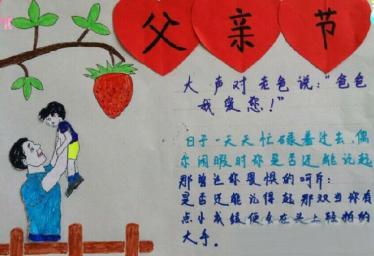 父亲节
大声对老爸说:“爸爸
我爱您!”
日子一天天忙碌着过去,偶
尔闲暇时你是否还能记起
那曾让你畏惧的呵斥;
是否还能记得起那双当你有
点小成绩便会在头上轻拍的
大手。